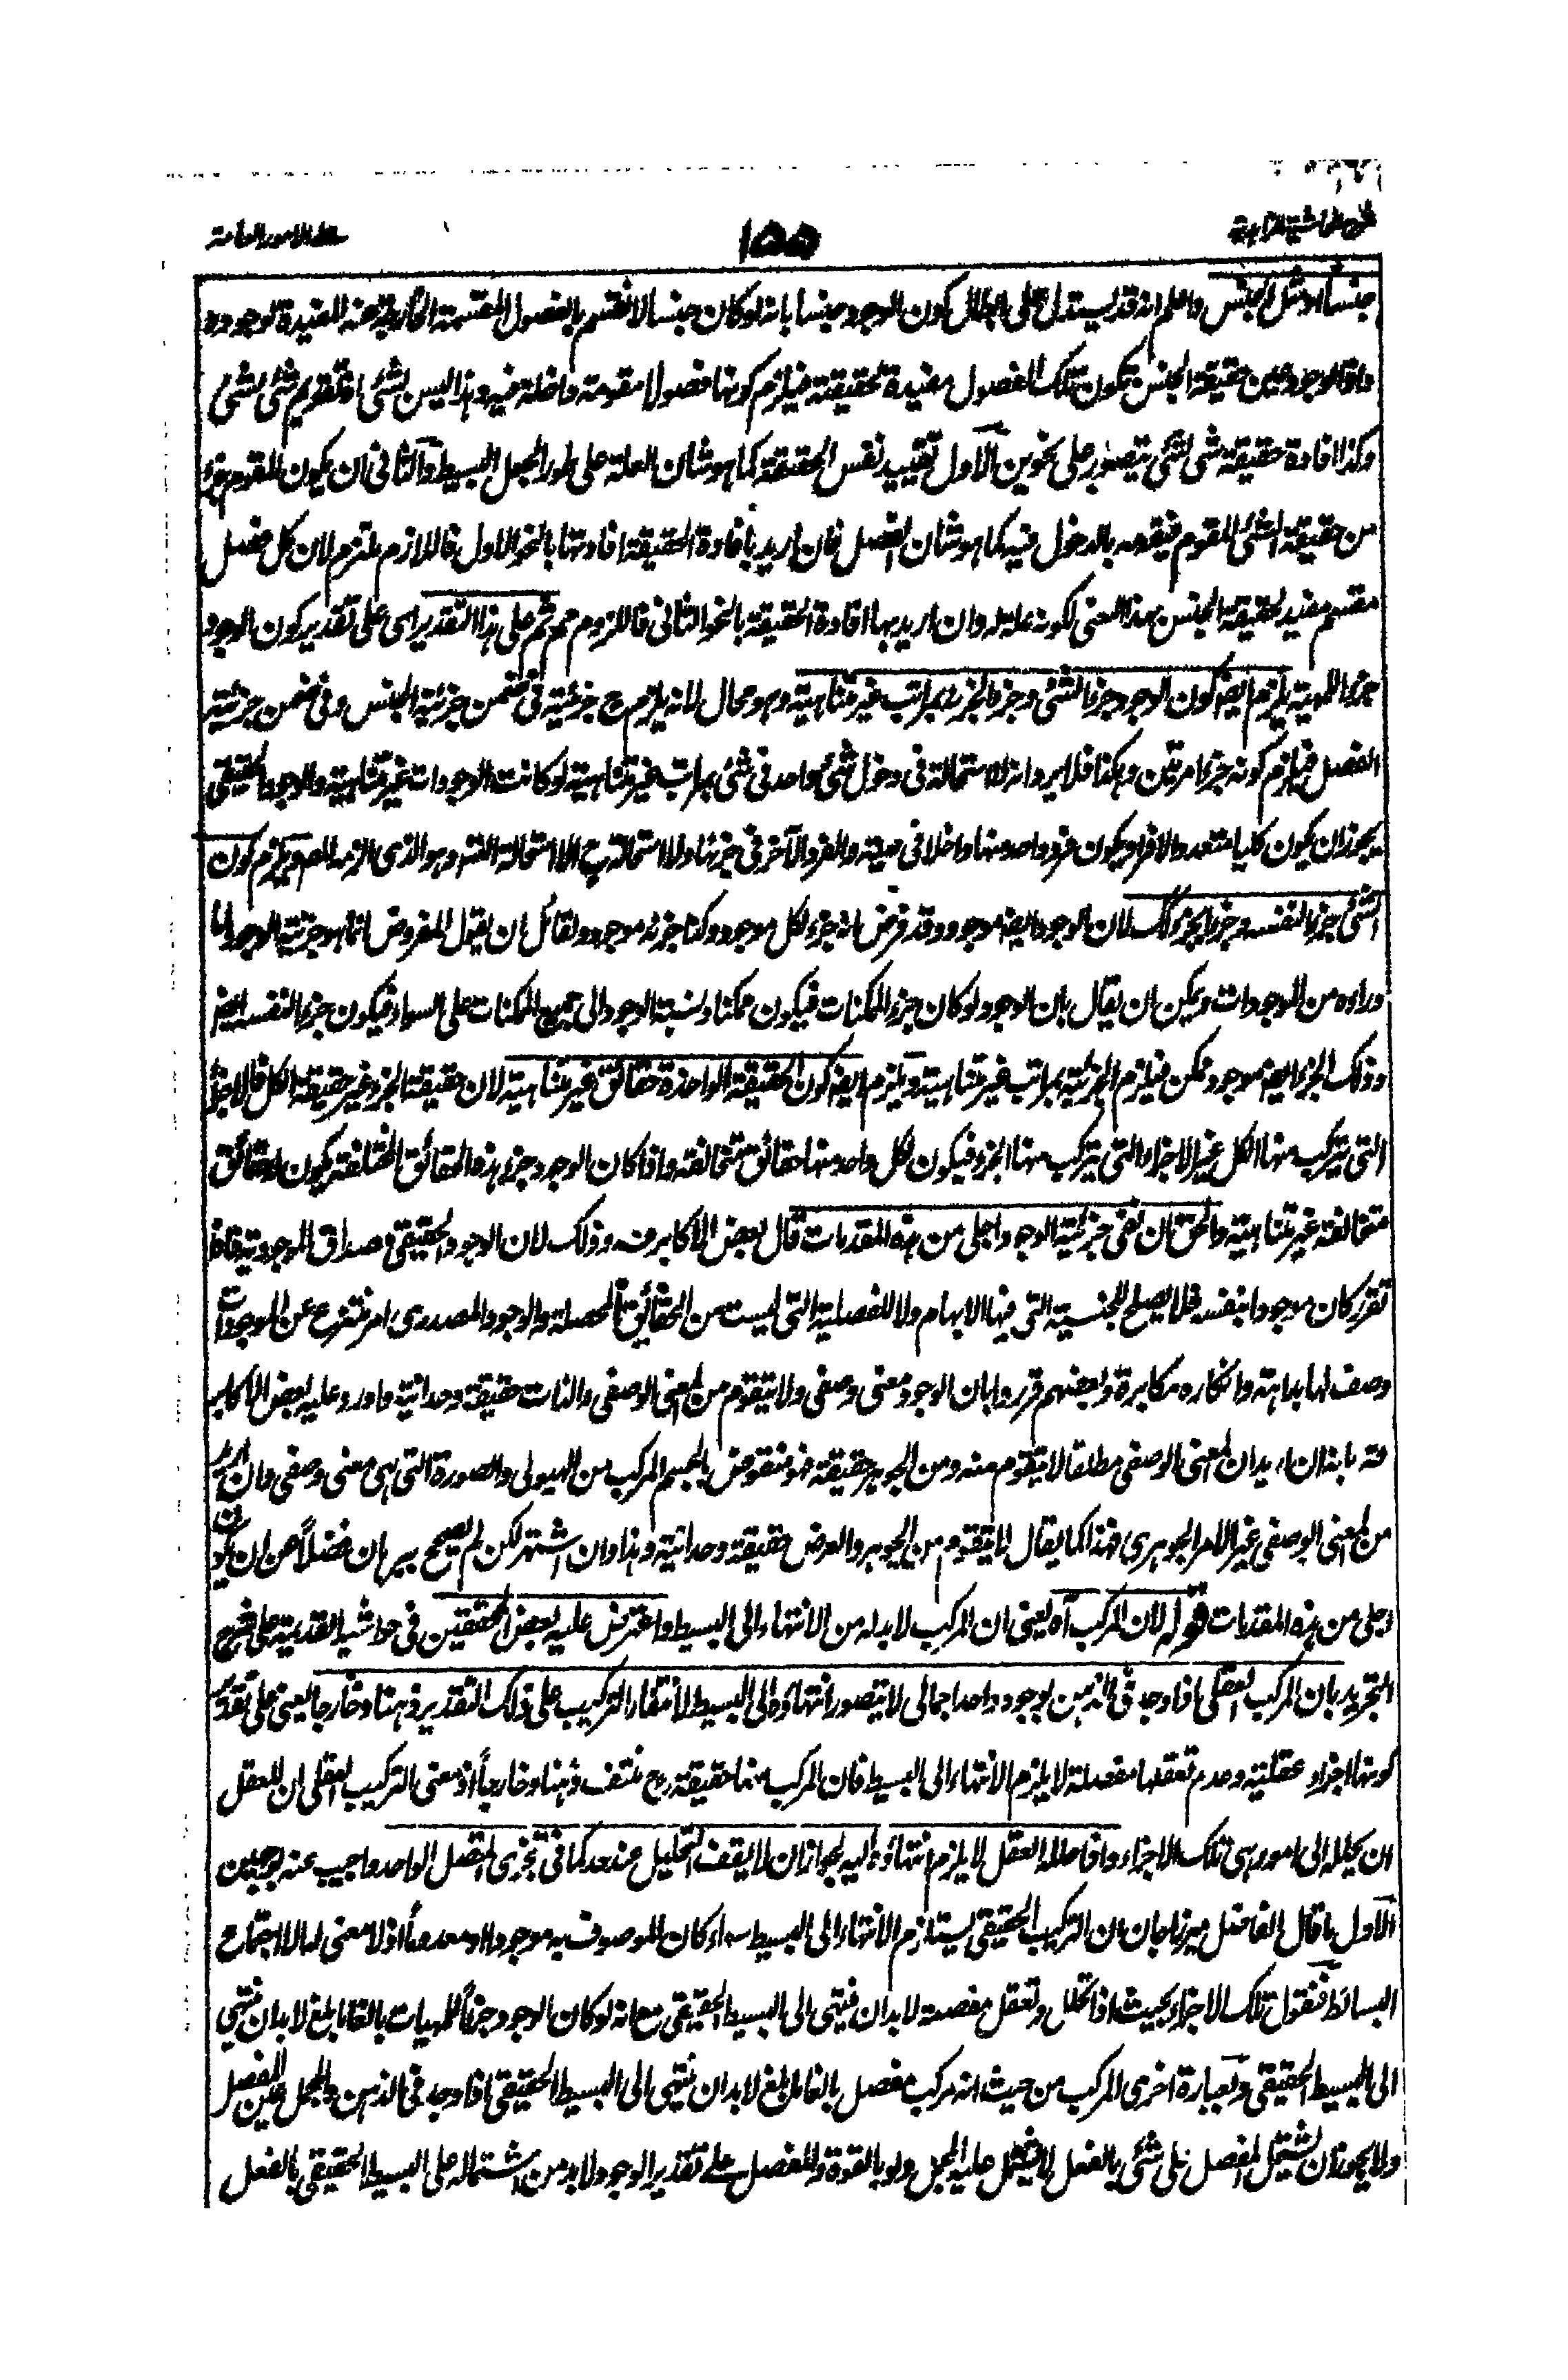 ١٥٥
جنسا او مثل الجنس واعلم انه قد يستدل على ابطال كون الوجود جنسا بانه لو كان جنسا لانقسم بالفصول المقسمة المفيدة لوجوده
واذا الوجود عين حقيقة الجنس تكون تلك الفصول مفيدة لحقيقته فيلزم كونها فصولا مقومة داخلة فيه وهذا ليس بشئ اذ تقويم شئ لشئ
وكذا افادة حقيقة شئ لشئ يتصور على نحوين الاول تقييد نفس الحقيقة كما هو شان العلة على طور الجعل البسيط والثانى ان يكون المقوم جزء
من حقيقة الشئ المقوم فيقومه بالدخول فيه كما هو شان الفصل فان اريد بافادة الحقيقة افادتها بالنحو الاول فاللازم ملتزم لان كل فصل
مقسم مفيد لحقيقة الجنس بهذا المعنى لكونه علة له وان اريد بها افادة الحقيقة بالنحو الثانى فاللزوم مم ثم على هذا التقدير اى على تقدير كون الوجود
جزء للمهية يلزم ايضا كون الوجود جزءا لشئ وجزءا لجزئه بمراتب غير متناهية وهو محال لانه يلزم ح جزئية فى ضمن جزئية الجنس وفى ضمن جزئية
الفصل فيلزم كونه جزءا مرتين وهكذا فلا يرد انه لا استحالة فى دخول شئ واحد فى شئ بمراتب غير متناهية لو كانت الوجودات غير متناهية والوجود الحقيقى
يجوز ان يكون كليا متعدد الافراد يكون فرد واحد منها داخلا فى مهية والفرد الآخر فى جزئها ولا استحالة ح الا استحالة التس وهو الذى الزمه المص ويلزم كون
الشئ جزءا لنفسه وجزءا لجزئه كك لان الوجود ايضا موجود وقد فرض انه جزء لكل موجود وكذا جزئه موجود ولقائل ان يقول المفروض انما هو جزئية الوجود لما
وراءه من الموجودات ويمكن ان يقال بان الوجود لو كان جزء للممكنات فيكون ممكنا ونسبة الوجود الى جميع الممكنات على السواء فيكون جزءا لنفسه ايضا
وذلك الجزء ايضا موجود ممكن فيلزم الجزئية بمراتب غير متناهية ويلزم ايضا كون الحقيقة الواحدة حقائق غير متناهية لان حقيقة الجزء غير حقيقة الكل فالاجزاء
التى يتركب منها الكل غير الاجزاء التى يتركب منها الجزء فيكون لكل واحد منها حقائق متخالفة واذا كان الوجود جزء هذه الحقائق المختلفة يكون له حقائق
متخالفة غير متناهية والحق ان نفى جزئية الوجود اجلى من هذه المقدمات قال بعض الاكابر قه وذلك لان الوجود الحقيقى مصداق الموجودية فاذا
تقرر كان موجودا بنفسه فلا يصلح للجنسية التى فيها الابهام ولا للفصلية التى ليست من الحقائق المحصلة والوجود المصدرى امر منتزع عن الموجودات
وصف لها بداهة وانكاره مكابرة وبعضهم قرروا بان الوجود معنى وصفى ولا يتقوم من المعنى الوصفى والذات حقيقة وحدانية واورد عليه بعض الاكابر
قه بانه ان اريد ان المعنى الوصفى مطلقا لا يتقوم منه ومن الجوهر حقيقة فهو منقوض بالجسم المركب من الهيولى والصورة التى هى معنى وصفى وان اريد
من المعنى الوصفى غير الامر الجوهرى فهذا كما يقال لا يتقوم من الجوهر والعرض حقيقة وحدانية وهذا وان اشتهر لكن لم يصح ببرهان فضلاً عن ان يكون
اجلى من هذه المقدمات قوله لان المركب آه يعنى ان المركب لابد له من الانتهاء الى البسيط واعترض عليه بعض المحققين فى حواشيه القديمة على شرح
التجريد بان المركب العقلى اذا وجد فى الذهن بوجود واحد اجمالى لا يتصور انتهاؤه الى البسيط لانتفاء التركيب على ذلك التقدير ذهنا وخارجا يعنى على تقدير
كونها اجزاء عقلية وعدم تعقلها مفصلة لا يلزم الانتهاء الى البسيط فان المركب منها حقيقة ح منتف ذهنا وخارجاً اذ معنى التركيب العقلى ان للعقل
ان يحلله الى امور هى تلك الاجزاء واذا حلله العقل لا يلزم انتهاؤه اليه لجواز ان لا يقف التحليل عند حد كما فى تجزى المتصل الواحد واجيب عنه بوجهين
الاول ما قال الفاضل ميرزاجان ان التركيب الحقيقى يستلزم الانتهاء الى البسيط سواء كان الموصوف به موجودا او معدوماً اذ لا معنى له الا اجتماع
البسائط فنقول تلك الاجزاء بحيث اذا تحلل وتعقل مفصلة لابد ان ينتهى الى البسيط الحقيقى مع انه لو كان الوجود جزءاً للمهيات بالغا ما بلغ لابد ان ينتهى
الى البسيط الحقيقى وبعبارة اخرى المركب من حيث انه مركب مفصل بالغا ما بلغ لابد ان ينتهى الى البسيط الحقيقى اذا وجد فى الذهن والمجمل عين المفصل
ولا يجوز ان يشتمل المفصل على شئ بالفعل لا يشتمل عليه المجمل ولو بالقوة والمفصل على تقدير الوجود لابد من اشتماله على البسيط الحقيقى بالفعل